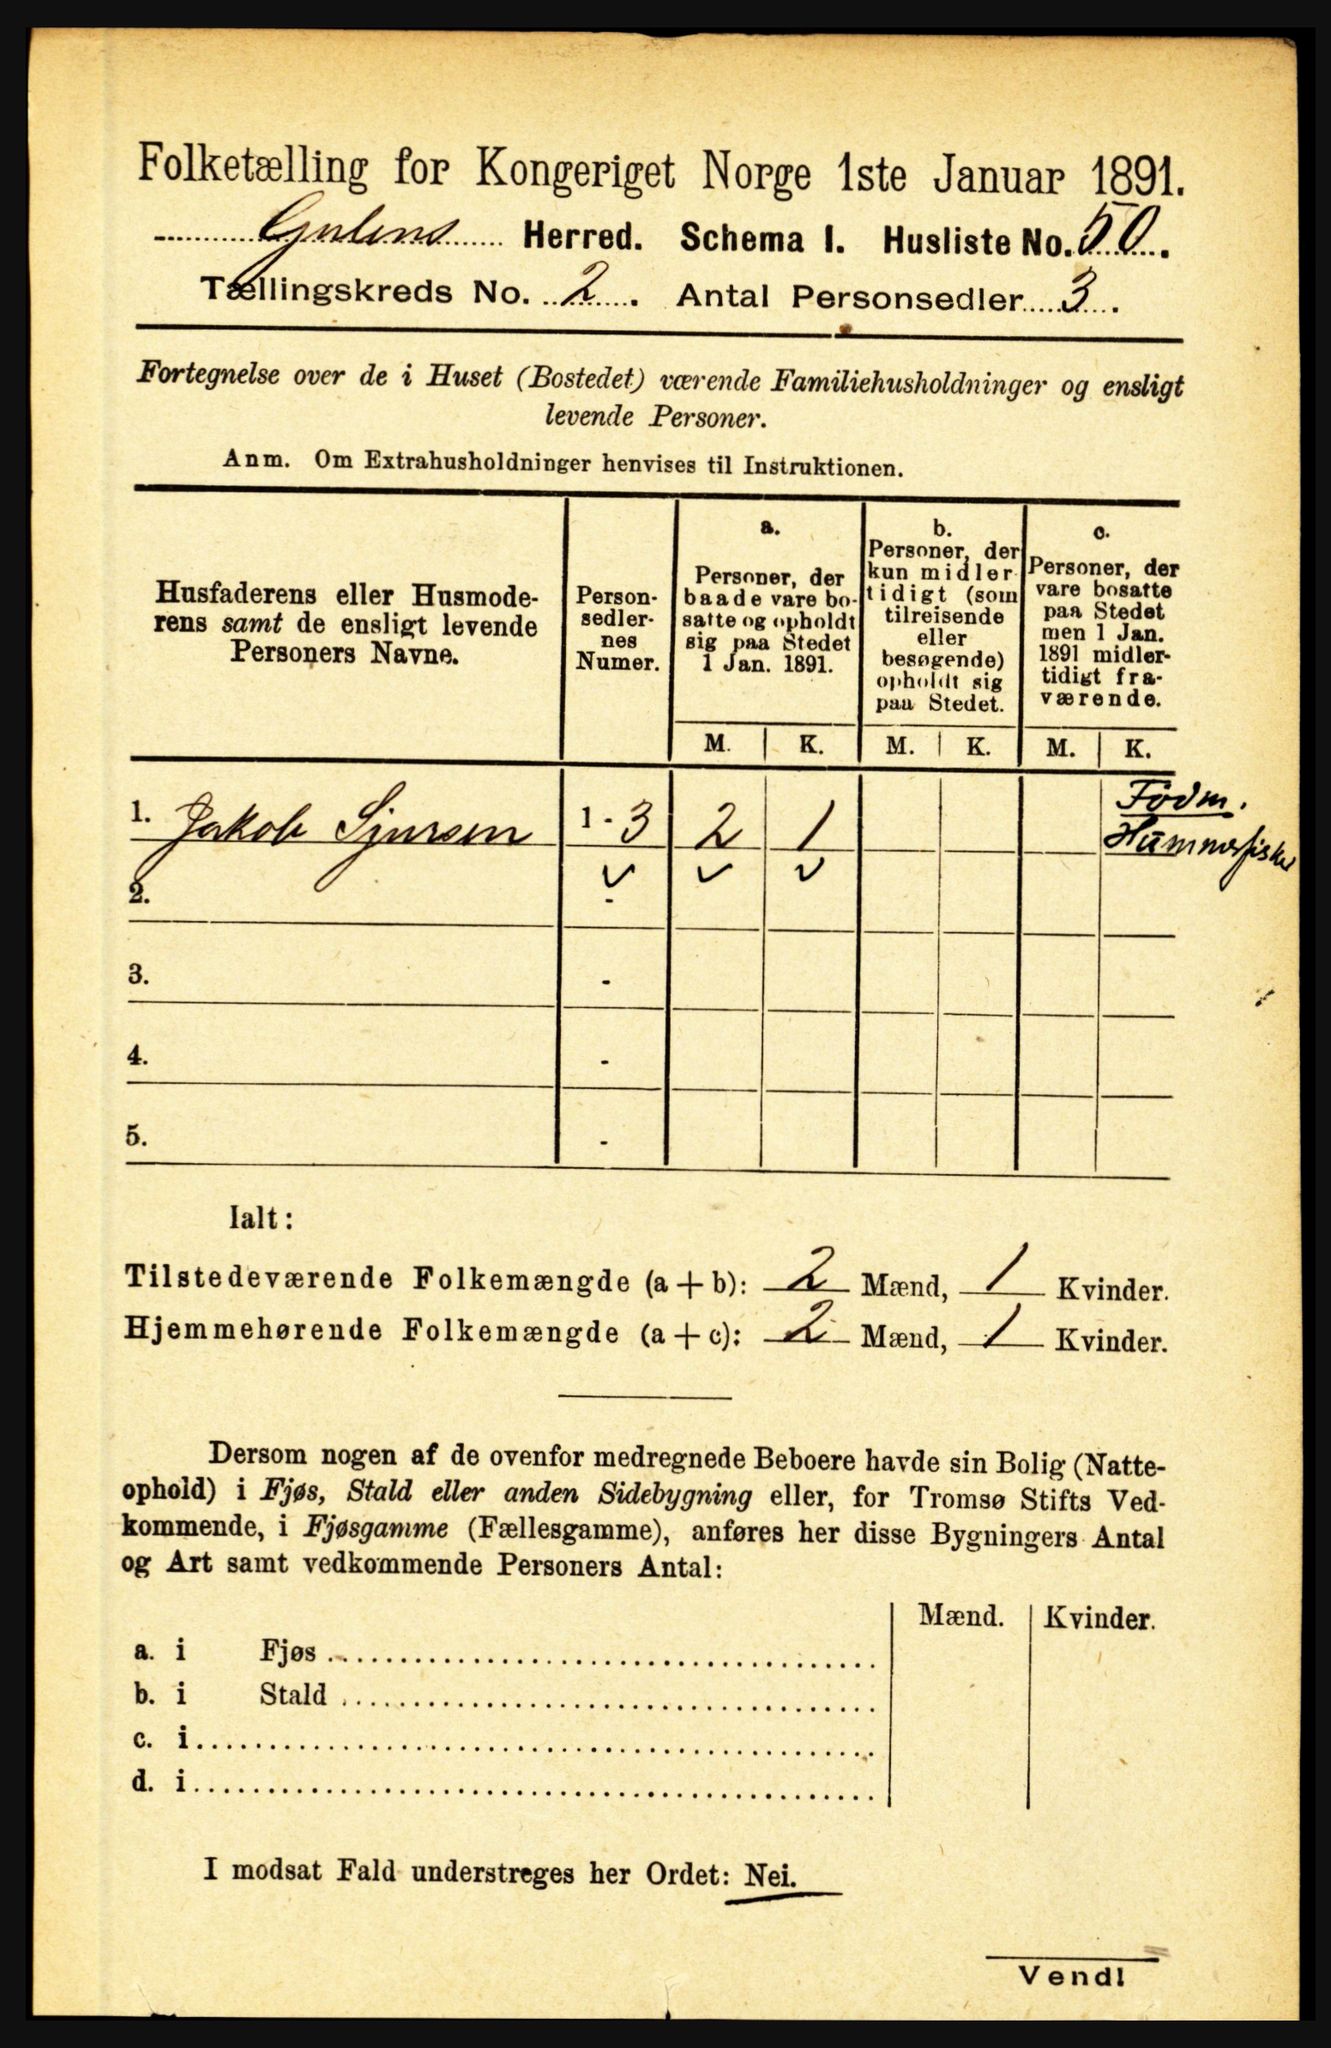 Folketælling for Kongeriget Norge 1ste Januar 1891.
Gulens Herred. Schema I. Husliste No. 50.
Tællingskreds No. 2. Antal Personsedler 3.
Fortegnelse over de i Huset (Bostedet) værende Familiehusholdninger og ensligt
levende Personer.
Anm. Om Extrahusholdninger henvises til Instruktionen.
Husfaderens eller Husmode-
rens samt de ensligt levende
Personers Navne.
Person-
sedler-
nes
Numer.
a.
Personer, der
baade vare bo-
satte og opholdt
sig paa Stedet
1 Jan. 1891.
b.
Personer, der
kun midler-
tidigt (som
tilreisende
eller
besøgende)
opholdt sig
paa Stedet.
c.
Personer, der
vare bosatte
paa Stedet
men 1 Jan.
1891 midler-
tidigt fra-
værende.
M. K. M. K. M. K.
1. Jakob Sjursen 1 - 3 2 1
Födm.
Hummerfisker
2. -
3. -
4. -
5. -
Ialt:
Tilstedeværende Folkemængde (a + b): 2 Mænd, 1 Kvinder.
Hjemmehørende Folkemængde (a + c): 2 Mænd, 1 Kvinder.
Dersom nogen af de ovenfor medregnede Beboere havde sin Bolig (Natte-
ophold) i Fjøs, Stald eller anden Sidebygning eller, for Tromsø Stifts Ved-
kommende, i Fjøsgamme (Fællesgamme), anføres her disse Bygningers Antal
og Art samt vedkommende Personers Antal:
Mænd. Kvinder.
a. i Fjøs
b. i Stald
c. i
d. i
I modsat Fald understreges her Ordet: Nei.
Vend!